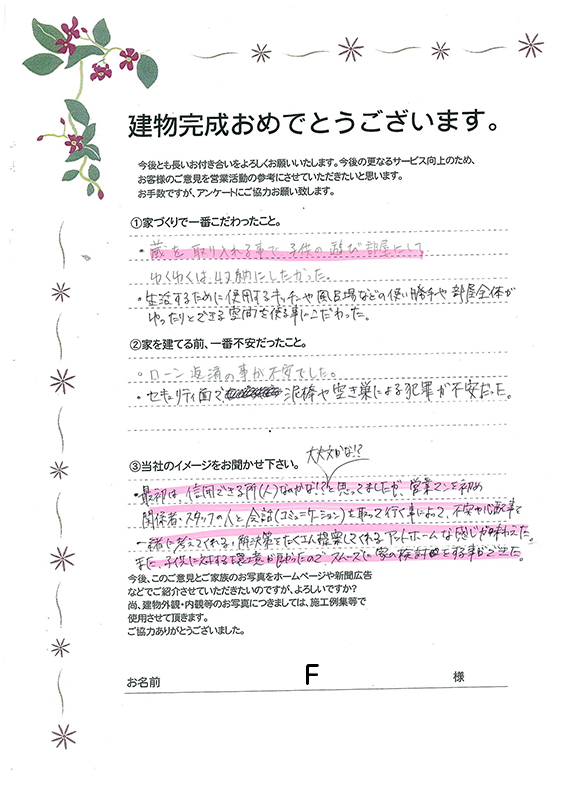 建物完成おめでとうございます。
今後とも長いお付き合いをよろしくお願いいたします。今後の更なるサービス向上のため、
お客様のご意見を営業活動の参考にさせていただきたいと思います。
お手数ですが、アンケートにご協力お願い致します。
①家づくりで一番こだわったこと。
・蔵を取り入れる事で子供の遊び部屋にして
ゆくゆくは、収納にしたかった。
・生活するために使用するキッチンや風呂場などの使い勝手や部屋全体が
ゆったりとできる空間を作る事にこだわった。
②家を建てる前、一番不安だったこと。
・ローン返済の事が不安でした。
・セキュリティ面で 泥棒や空き巣による犯罪が不安だった。
③当社のイメージをお聞かせ下さい。
大丈夫かな!?
・最初は、信用できる所(人)なのかな!?と思ってましたが、営業マンを初め
関係者・スタッフの人と会話(コミュニケーション)を取って行く事によって、不安や心配事を
一緒に考えてくれる、解決策をたくさん提案してくれるアットホームな感じが味わえた。
また、子供に対する環境が良かったのでスムーズに家の検討をする事ができた。
今後、このご意見とご家族のお写真をホームページや新聞広告
などでご紹介させていただきたいのですが、よろしいですか?
尚、建物外観・内観等のお写真につきましては、施工例集等で
使用させて頂きます。
ご協力ありがとうございました。
お名前 F 様